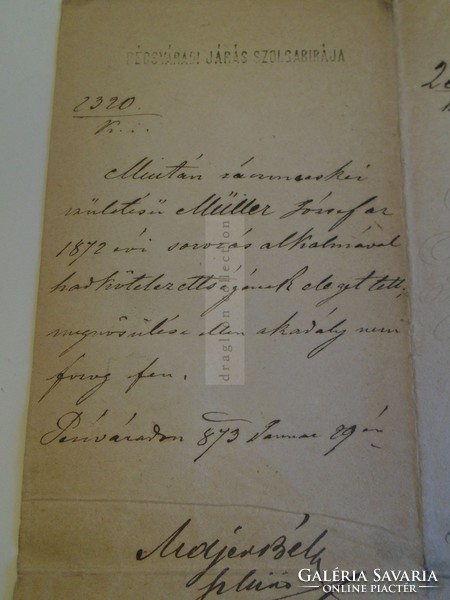 PÉCSVÁRADI JÁRÁS SZOLGABIRÁJA
2320
Miután ráczmecskei
születésü Müller József az
1872 évi sorozás alkalmával
hadkötelezettségének eleget tett,
megnősülése ellen akadály nem
forog fen.
Pécsváradon 873 Januar 29 én
Béla
draglon collection
GALÉRIA SAVARIA
ONLINE PIACTÉR